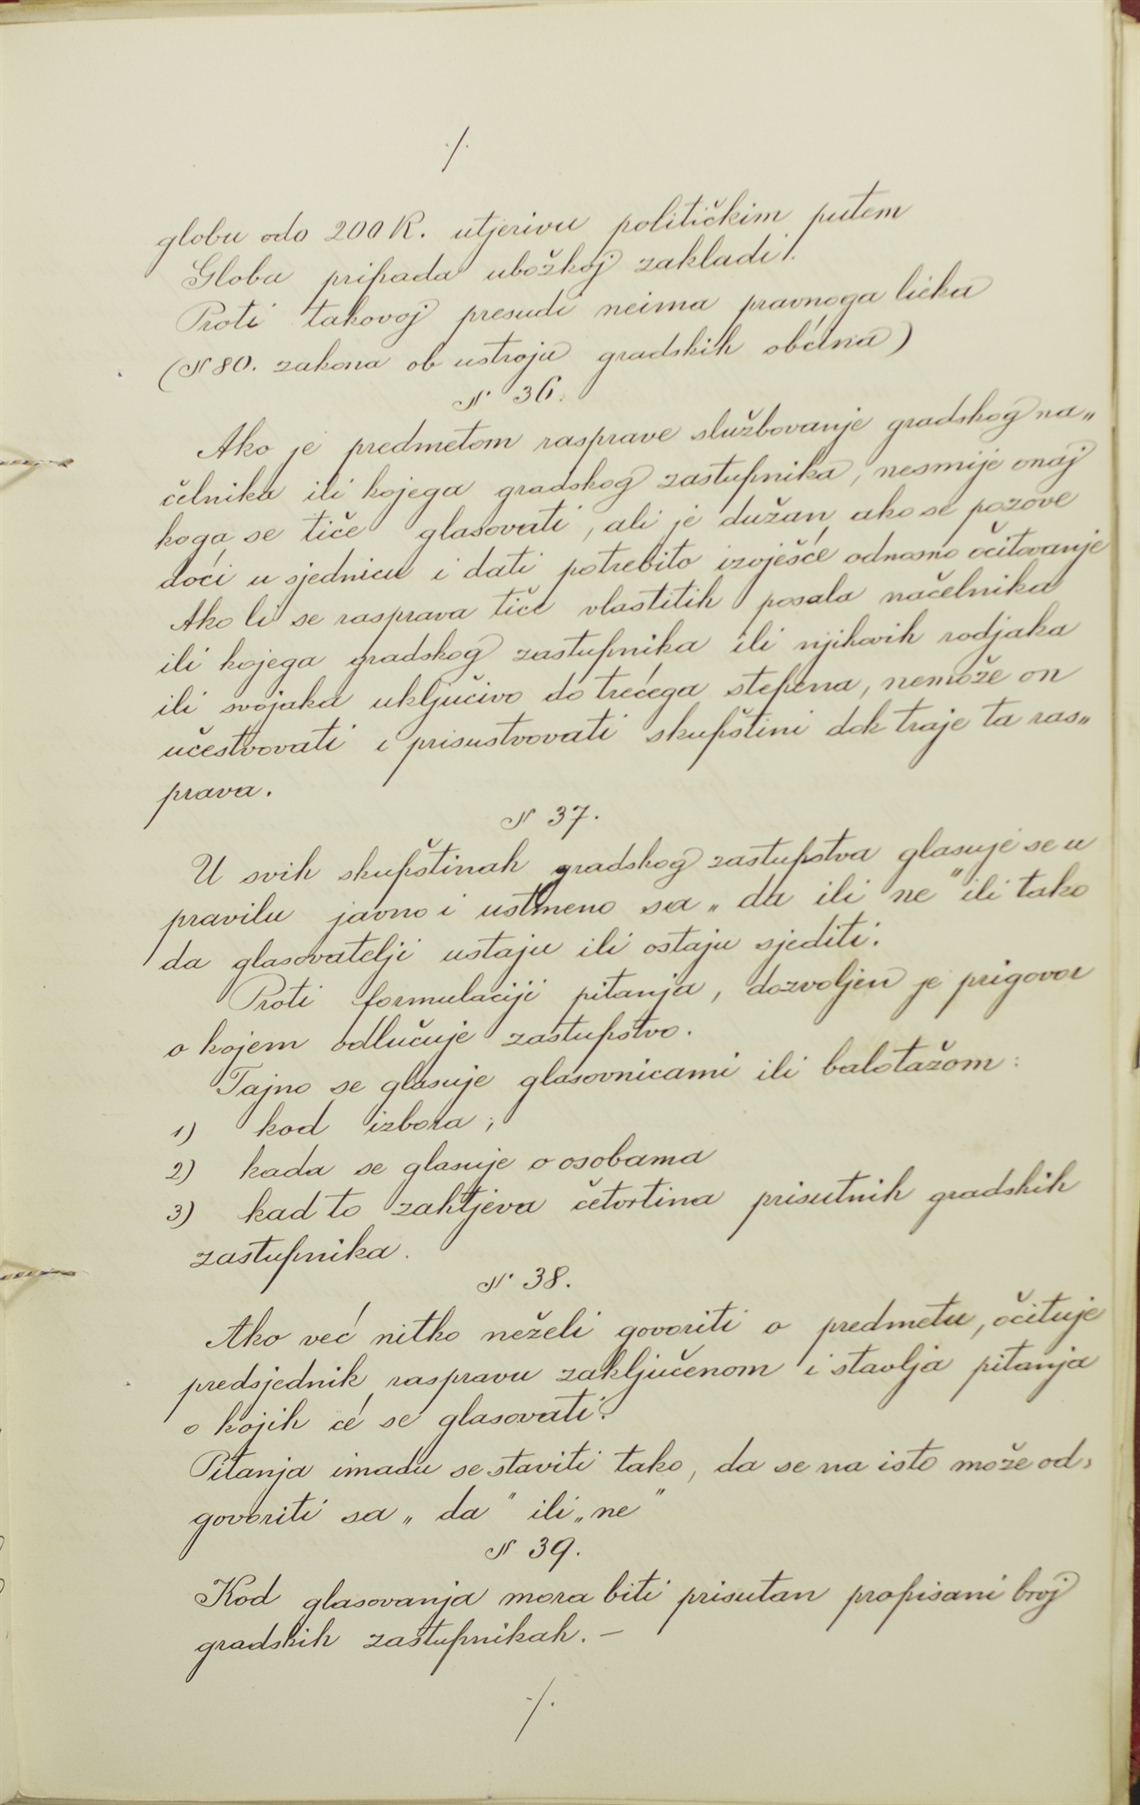 ./.
globu odo 200 K. utjerivu političkim putem
Globa pripada ubožkoj zakladi.
Proti takovoj presudi neima pravnoga lieka
(§ 80. zakona ob ustroju gradskih obćina)
§ 36.
Ako je predmetom rasprave službovanje gradskog na„
čelnika ili kojega gradskog zastupnika, nesmije onaj
koga se tiče glasovati, ali je dužan ako se pozove
doći u sjednicu i dati potrebito izvješće odnosno očitovanje
Ako li se rasprava tiče vlastitih posala načelnika
ili kojega gradskog zastupnika ili njihovih rodjaka
ili svojaka uključivo do trećega stepena, nemože on
učestvovati i prisustvovati skupštini dok traje ta ras„
prava.
§ 37.
U svih skupštinah gradskog zastupstva glasuje se u
pravilu javno i ustmeno sa „da ili ne" ili tako
da glasovatelji ustaju ili ostaju sjediti.
Proti formulaciji pitanja, dozvoljen je prigovor
o kojem odlučuje zastupstvo.
Tajno se glasuje glasovnicami ili balotažom:
1) kod izbora;
2) kada se glasuje o osobama
3) kad to zahtjeva četvrtina prisutnih gradskih
zastupnika.
§ 38.
Ako već nitko neželi govoriti o predmetu, očituje
predsjednik raspravu zaključenom i stavlja pitanja
o kojih će se glasovati.
Pitanja imadu se staviti tako, da se na isto može od„
govoriti sa „da" ili „ne"
§ 39.
Kod glasovanja mora biti prisutan propisani broj
gradskih zastupnikah. —
./.